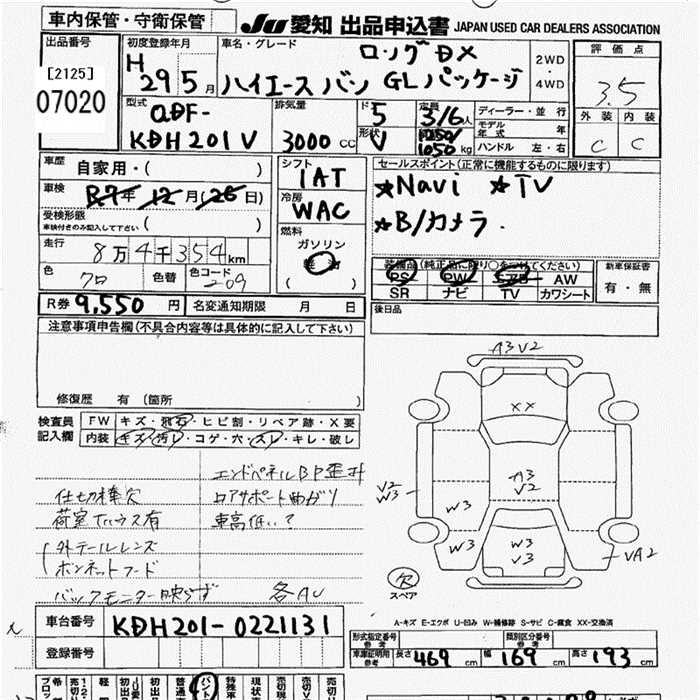 車内保管・守衛保管
JU 愛知 出品申込書 JAPAN USED CAR DEALERS ASSOCIATION
出品番号
[2125]
07020
初度登録年月
H 29 5月
車名・グレード
ロングDX
ハイエースバン GLパッケージ
2WD
・
4WD
評価点
3.5
外装 内装
C C
型式
QDF-
KDH201V
排気量
3000 cc
ド 5
形状 V
定員
3/6人
1050kg
ディーラー・並行
モデル年式 年
ハンドル 左・右
車歴 自家用・( )
車検 R7年 12月(26日)
受検形態
車検付きのみ記入して下さい ( )
走行 8万4千354km
色 クロ 色替 色コード 209
シフト
IAT
冷房
WAC
燃料
ガソリン
( )
セールスポイント(正常に機能するものに限ります)
★Navi ★TV
★B/カメラ.
装備品(純正品に限り○をつけてください)
PS PW エアB AW
SR ナビ TV カワシート
新車保証書
有・無
R券 9,550 円 名変通知期限 月 日
後日品
注意事項申告欄(不具合内容等は具体的に記入して下さい)
修復歴 有 (箇所 )
検査員
記入欄
FW キズ・飛石・ヒビ割・リペア跡・X要
内装 キズ・汚レ・コゲ・穴・スレ・キレ・破レ
エンドパネルBP歪ミ
仕切棒欠 ロアサポート曲ガリ
荷室Tハウス有 車高低い?
外テールレンズ
ボンネットフード
バックモニター映らず 各AU
A3 V2
XX
A3
V2
V2
W3
W3
W3
W3
V3
VA2
欠
スペア
A-キズ E-エクボ U-凹み W-補修跡 S-サビ C-腐食 XX-交換済
車台番号 KDH201-0221131
登録番号
型式指定番号
参考
類別区分番号
参考
車庫証明用
参考
長さ 469 cm 幅 169 cm 高さ 193 cm